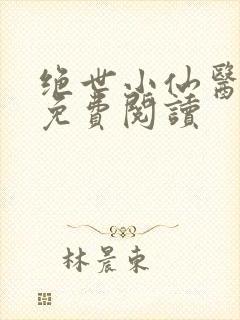 绝世小仙醫
免費閱讀
林晨東